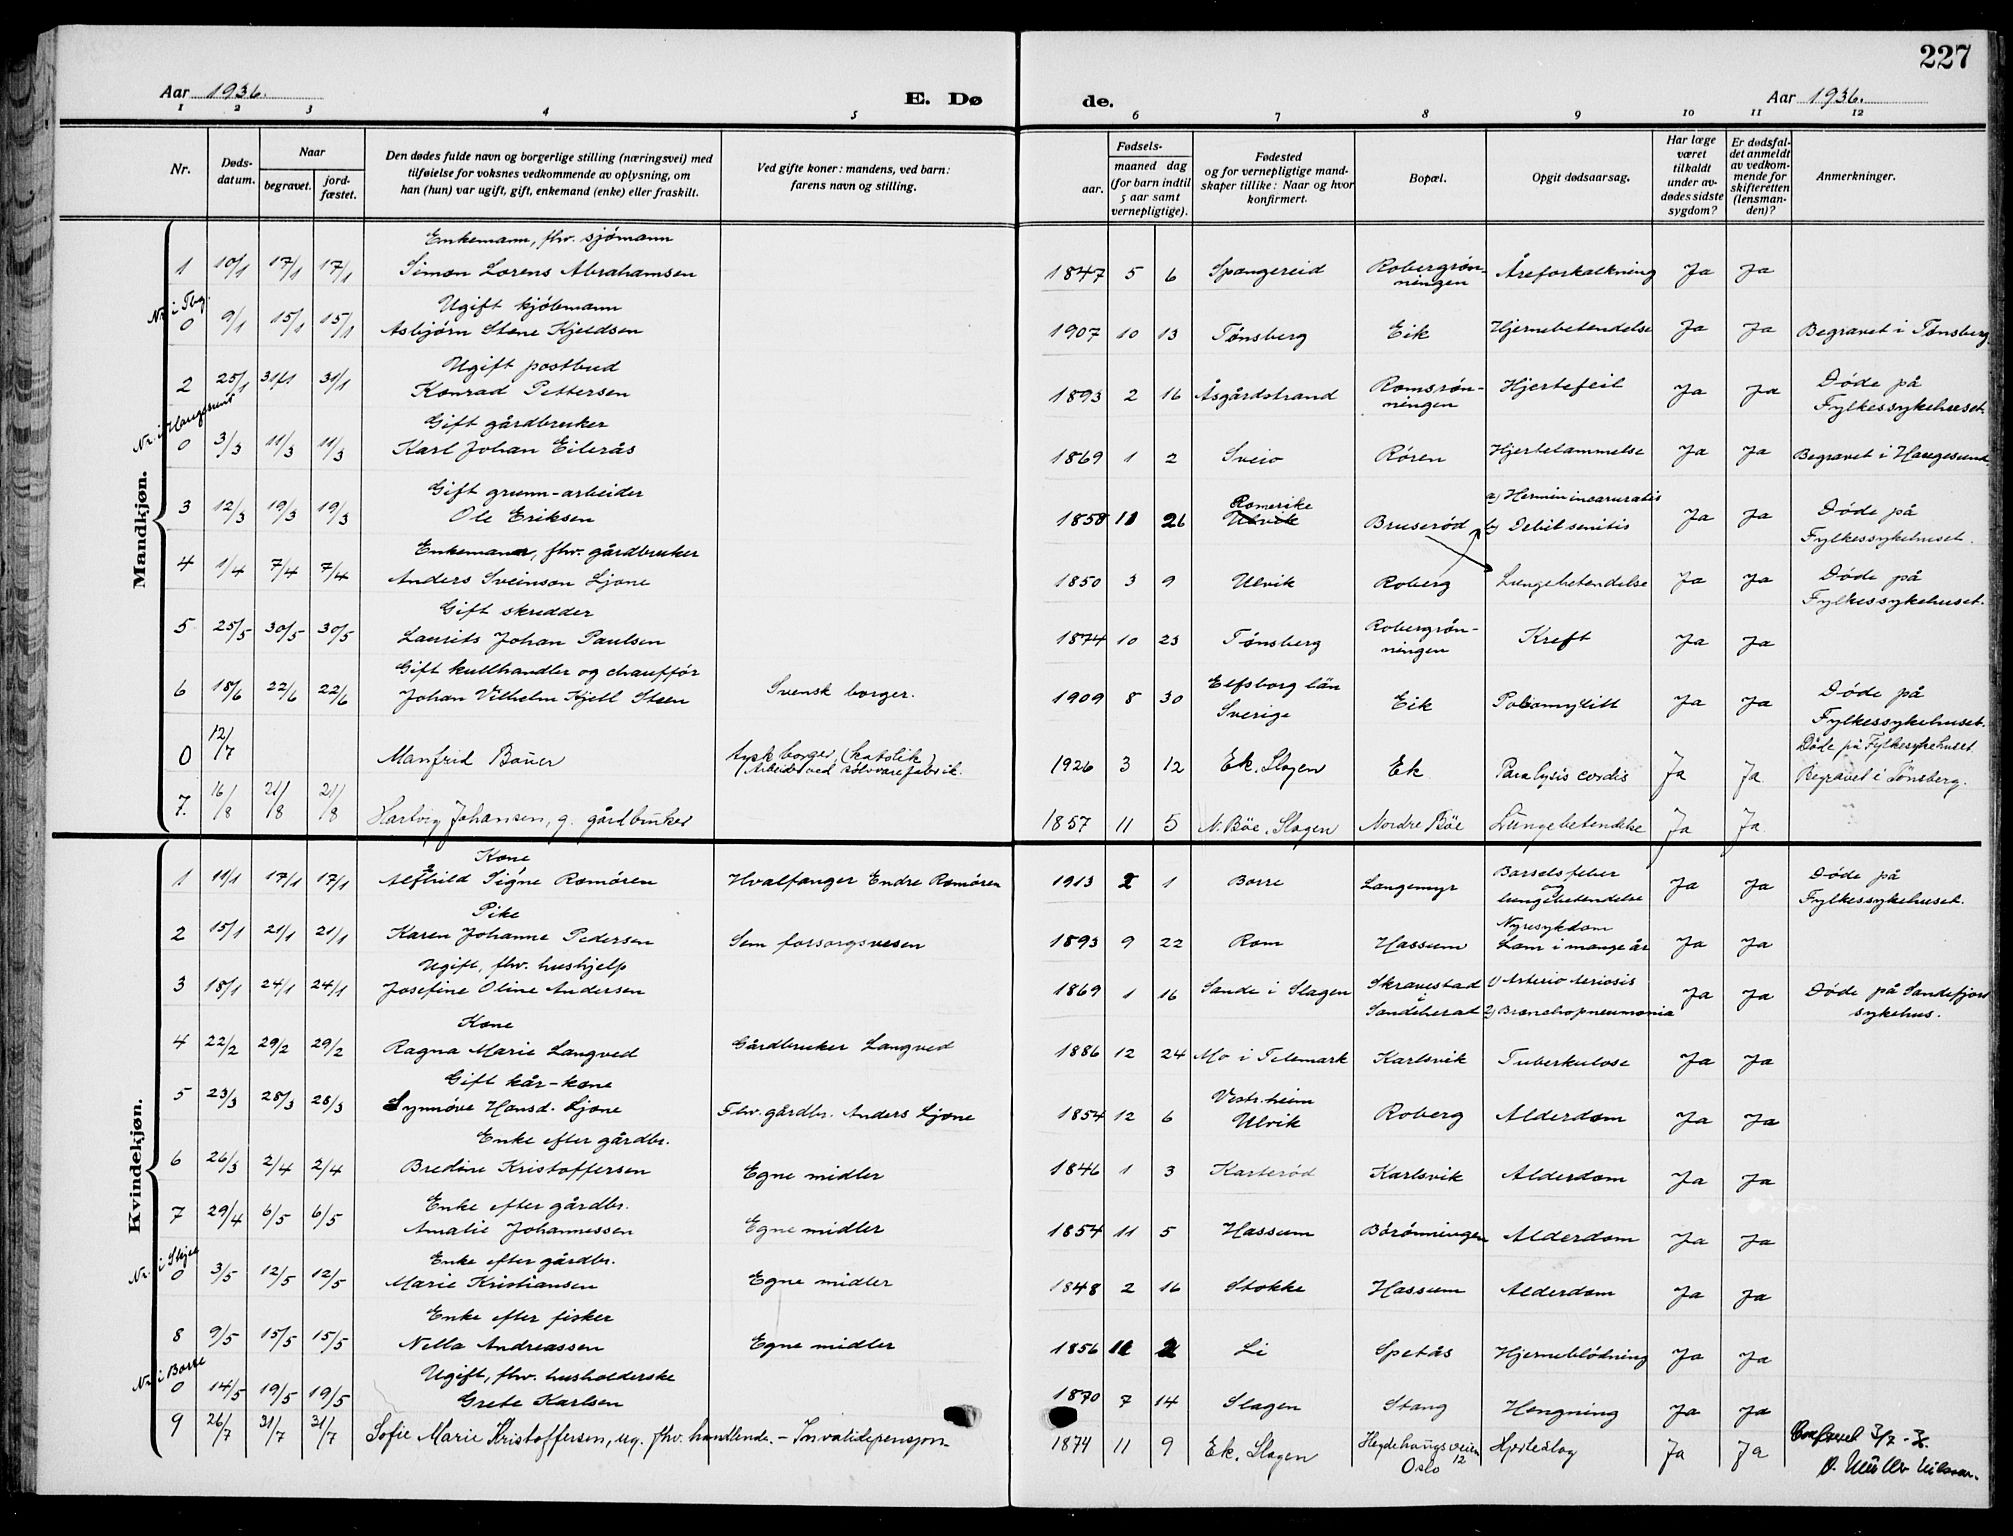 227
Aar 1936. E. Dø de. Aar 1936.
1 2 3 4 5 6 7 8 9 10 11 12
Nr. Døds-datum. Naar begravet. jord-fæstet. Den dødes fulde navn og borgerlige stilling (næringsvei) med tilføielse for voksnes vedkommende av oplysning, om han (hun) var ugift, gift, enkemand (enke) eller fraskilt. Ved gifte koner: mandens, ved barn: farens navn og stilling. Fødsels- aar. maaned dag (for barn indtil 5 aar samt vernepligtige). Fødested og for vernepligtige mandskaper tillike: Naar og hvor konfirmert. Bopæl. Opgit dødsaarsag. Har læge været tilkaldt under avdødes sidste sygdom? Er dødsfaldet anmeldt av vedkommende for skifteretten (lensmanden)? Anmerkninger.
Mandkjøn.
Enkemann, fhv. sjömann
1 10/1 17/1 17/1 Simon Lorens Abrahamsen 1847 5 6 Spangereid Robergrønningen Åreforkalkning Ja Ja
Nr. i Tbg. Ugift kjöbmann
0 9/1 15/1 15/1 Asbjörn Stene Kjeldsen 1907 10 13 Tønsberg Eik Hjernebetendelse Ja Ja Begravet i Tønsberg.
Ugift postbud
2 25/1 31/1 31/1 Konrad Pettersen 1893 2 16 Åsgårdstrand Romsrønningen Hjertefeil Ja Ja Døde på Fylkessykehuset.
Nr. i Haugesund Gift gårdbruker
0 3/3 11/3 11/3 Karl Johan Eilerås 1869 1 2 Sveio Røren Hjertelammelse Ja Ja Begravet i Haugesund.
Gift grunn-arbeider
3 12/3 19/3 19/3 Ole Eriksen 1858 11 26 Romerike Ulvik Bruserød a) b) Debil senilis Ja Ja Døde på Fylkessykehuset.
Enkemann, fhv. gårdbruker
4 1/4 7/4 7/4 Anders Sveinson Ljone 1850 3 9 Ulvik Roberg Lungebetendelse Ja Ja Døde på Fylkessykehuset.
Gift skredder
5 25/5 30/5 30/5 Laurits Johan Paulsen 1874 10 23 Tønsberg Robergrønningen Kreft Ja Ja
Gift kullhandler og chauffør
6 18/6 22/6 22/6 Johan Vilhelm Kjell Steen Svensk borger. 1909 8 30 Elfsborg län Sverige Eik Poliomyelitt Ja Ja Døde på Fylkessykehuset.
0 12/7 Manfrid Bauer tysk borger, (katolik) (Arbeider ved sølvvarefabrik. 1926 3 12 Ek, Slagen Ek Paralysis cordis Ja Ja Døde på Fylkesykehuset Begravet i Tönsberg.
7. 16/8 21/8 21/8 Hartvig Johansen, g. gårdbruker 1857 11 5 N. Bøe, Slagen Nordre Bøe Lungebetendelse Ja Ja
Kvindekjøn.
Kone
1 11/1 17/1 17/1 Alfhild Signe Romören Hvalfanger Endre Romören 1913 2 1 Borre Langemyr Barselsfeber og lungebetendelse Ja Ja Døde på Fylkessykehuset.
Pike
2 15/1 21/1 21/1 Karen Johanne Pedersen Sem forsorgsvesen 1893 9 22 Rom Hassum Nyresykdom Lam i mange år Ja Ja
Ugift, fhv. hushjelp
3 18/1 24/1 24/1 Josefine Oline Andersen 1869 1 16 Sande i Slagen Skravestad i Sandeherad 1) 2) Bronchopneumonia Ja Ja Døde på Sandefjord sykehus.
Kone
4 22/2 29/2 29/2 Ragna Marie Langved Gårdbruker Langved 1886 12 24 Mo i Telemark Karlsvik Tuberkulose Ja Ja
Gift kår-kone
5 23/3 28/3 28/3 Synnöve Hansd. Ljone Fhv. gårdbr. Anders Ljone 1854 12 6 Vestrheim Ulvik Roberg Alderdom Ja Ja
Enke efter gårdbr.
6 26/3 2/4 2/4 Bredine Kristoffersen Egne midler 1846 1 3 Karterød Karlsvik Alderdom Ja Ja
Enke efter gårdbr.
7 29/4 6/5 6/5 Amalie Johannessen Egne midler 1854 11 5 Hassum Börönningen Alderdom Ja Ja
Nr. i Skjee Enke efter gårdbr.
0 3/5 12/5 12/5 Marie Kristiansen Egne midler 1848 2 16 Stokke Hassum Alderdom Ja Ja
Enke efter fisker
8 9/5 15/5 15/5 Nella Andreassen Egne midler 1856 2 Li Spetås Hjerneblödning Ja Ja
Nr. i Borre Ugift, fhv. husholderske
0 14/5 19/5 19/5 Grete Karlsen 1870 7 14 Slagen Stang Hengning Ja Ja
9 26/7 31/7 31/7 Sofie Marie Kristoffersen, ug. fhv. handlende. - Invalidepensjon. 1874 11 9 Ek, Slagen Hegdehaugsveien 12 Oslo Hjerteslag Ja Ja